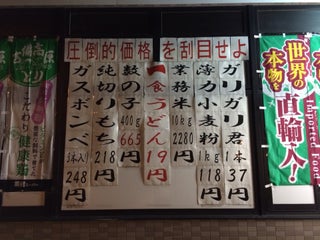 圧倒的価格を刮目せよ
ガリガリ君 1本 37円
薄力小麦粉 1kg 118円
業務米 10kg 2280円
一食うどん 19円
数の子 400g 665円
純切りもち 218円
ガスボンベ 3本入り 248円
世界の本物を
直輸入!
Imported Food
こだわり健康